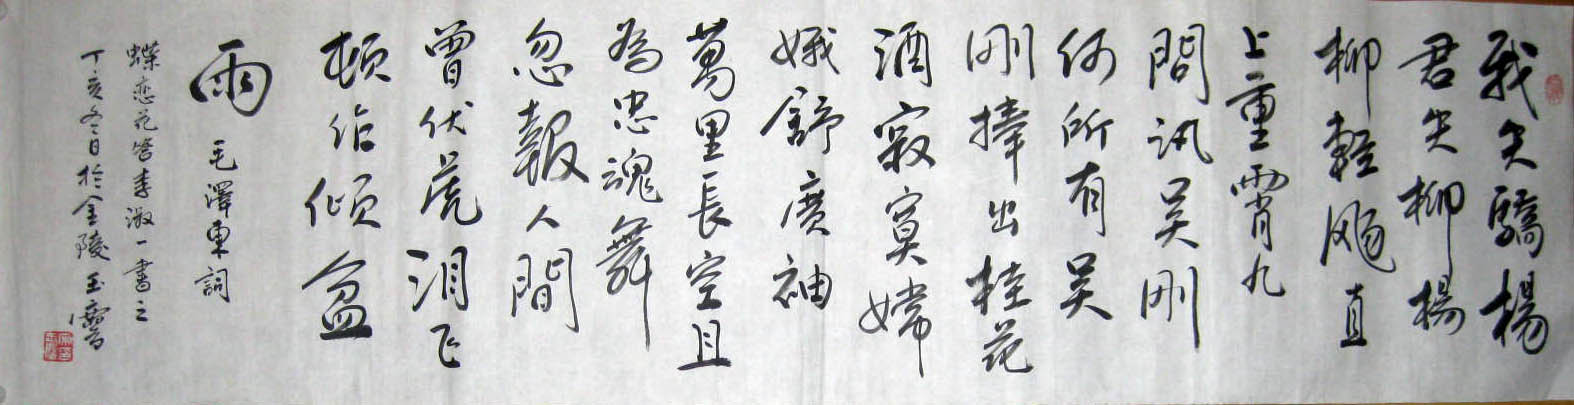 我失驕楊
君失柳楊
柳輕颺直
上重霄九
問訊吴刚
何所有吴
刚捧出桂花
酒寂寞嫦
娥舒廣袖
萬里長空且
為忠魂舞
忽報人間
曾伏虎泪飞
頓作傾盆
雨 毛澤東詞
蝶恋花答李淑一書之
丁亥冬日於金陵玉